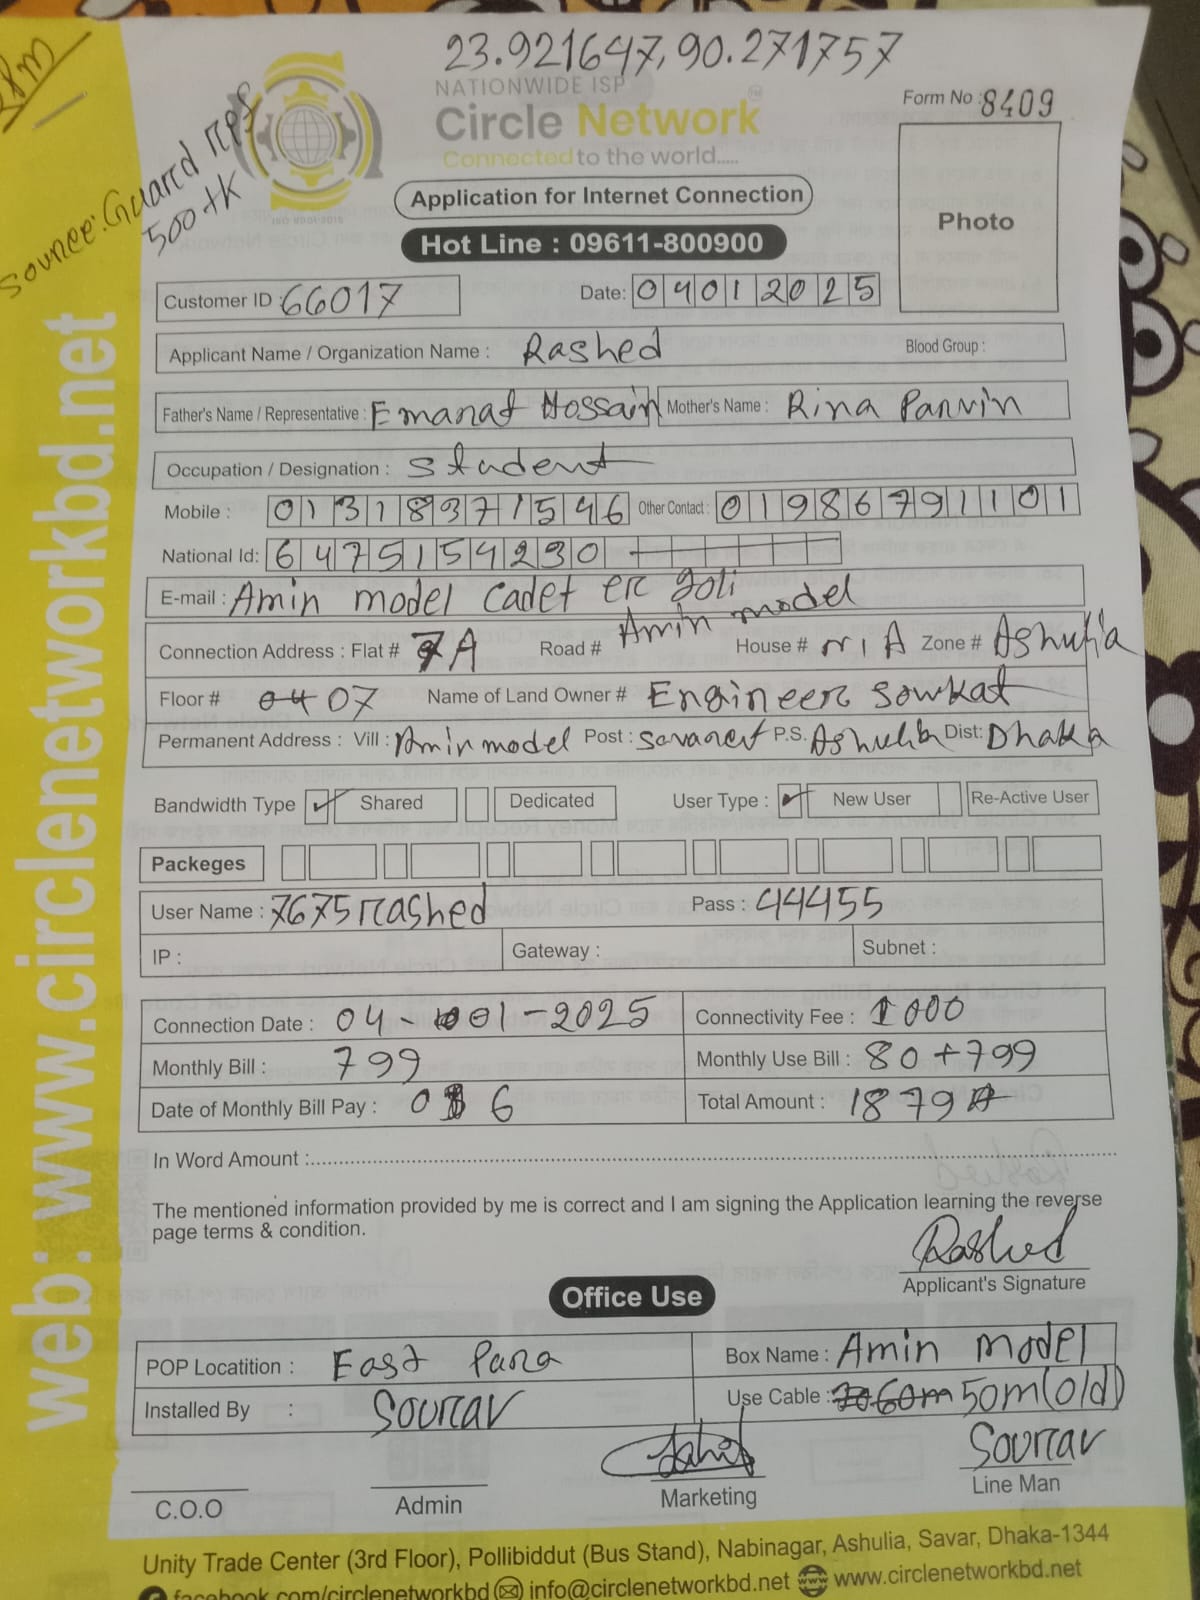 23.921647,90.271757
NATIONWIDE ISP
Circle Network
Connected to the world.....
Form No : 8409
Source: Guard
500 tk
ISO 9001:2015
Application for Internet Connection
Hot Line : 09611-800900
Photo
Customer ID : 66017 Date: 04012025
Applicant Name / Organization Name : Rashed Blood Group :
Father's Name / Representative : Emanat Hossain Mother's Name : Rina Parvin
Occupation / Designation : Student
Mobile : 01318371546 Other Contact : 01986791101
National Id: 6475154230
E-mail : Amin model Cadet er goli
Connection Address : Flat # 7A Road # Amin model House # N/A Zone # Ashulia
Floor # 04 07 Name of Land Owner # Engineer Sowkat
Permanent Address : Vill : Amin model Post : P.S. Ashulia Dist: Dhaka
Bandwidth Type Shared Dedicated User Type : New User Re-Active User
Packeges
User Name : 7675rashed Pass : 44455
IP : Gateway : Subnet :
Connection Date : 04-01-2025 Connectivity Fee : 1000
Monthly Bill : 799 Monthly Use Bill : 80+799
Date of Monthly Bill Pay : 6 Total Amount : 1879
In Word Amount :
The mentioned information provided by me is correct and I am signing the Application learning the reverse
page terms & condition.
Rashed
Applicant's Signature
Office Use
POP Locatition : East Para Box Name : Amin model
Installed By : Sourav Use Cable : 60m 50m(old)
Sourav
C.O.O Admin Marketing Line Man
Unity Trade Center (3rd Floor), Pollibiddut (Bus Stand), Nabinagar, Ashulia, Savar, Dhaka-1344
facebook.com/circlenetworkbd info@circlenetworkbd.net www.circlenetworkbd.net
web: www.circlenetworkbd.net